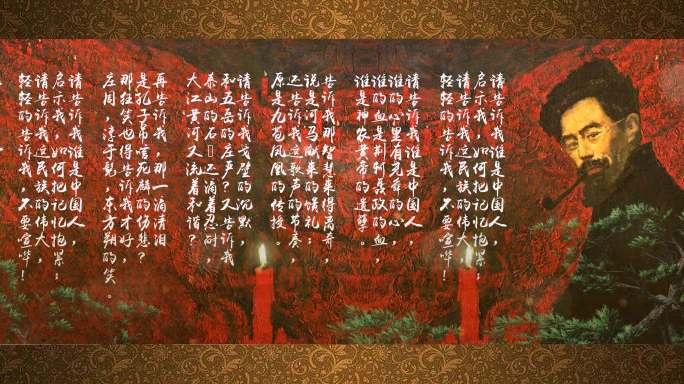 请告诉我谁是中国人，
启示我，如何把记忆抱紧；
请告诉我这民族的伟大，
轻轻的告诉我，不要喧哗！
请告诉我谁是中国人，
谁的心里有尧舜的心，
谁的血是荆轲聂政的血，
谁是神农黄帝的遗孽。
告诉我那智慧来得离奇，
说是河马献来的馈礼；
还告诉我这歌声的节奏，
原是九苞凤凰的传授。
请告诉我戈壁的沉默，
和五岳的庄严？又告诉我
泰山的石还滴着忍耐，
大江黄河又流着和谐？
再告诉我，那一滴清泪
是孔子吊唁死麟的伤悲？
那狂笑也得告诉我才好，
庄周，淳于髡，东方朔的笑。
请告诉我谁是中国人，
启示我，如何把记忆抱紧；
请告诉我这民族的伟大，
轻轻的告诉我，不要喧哗！